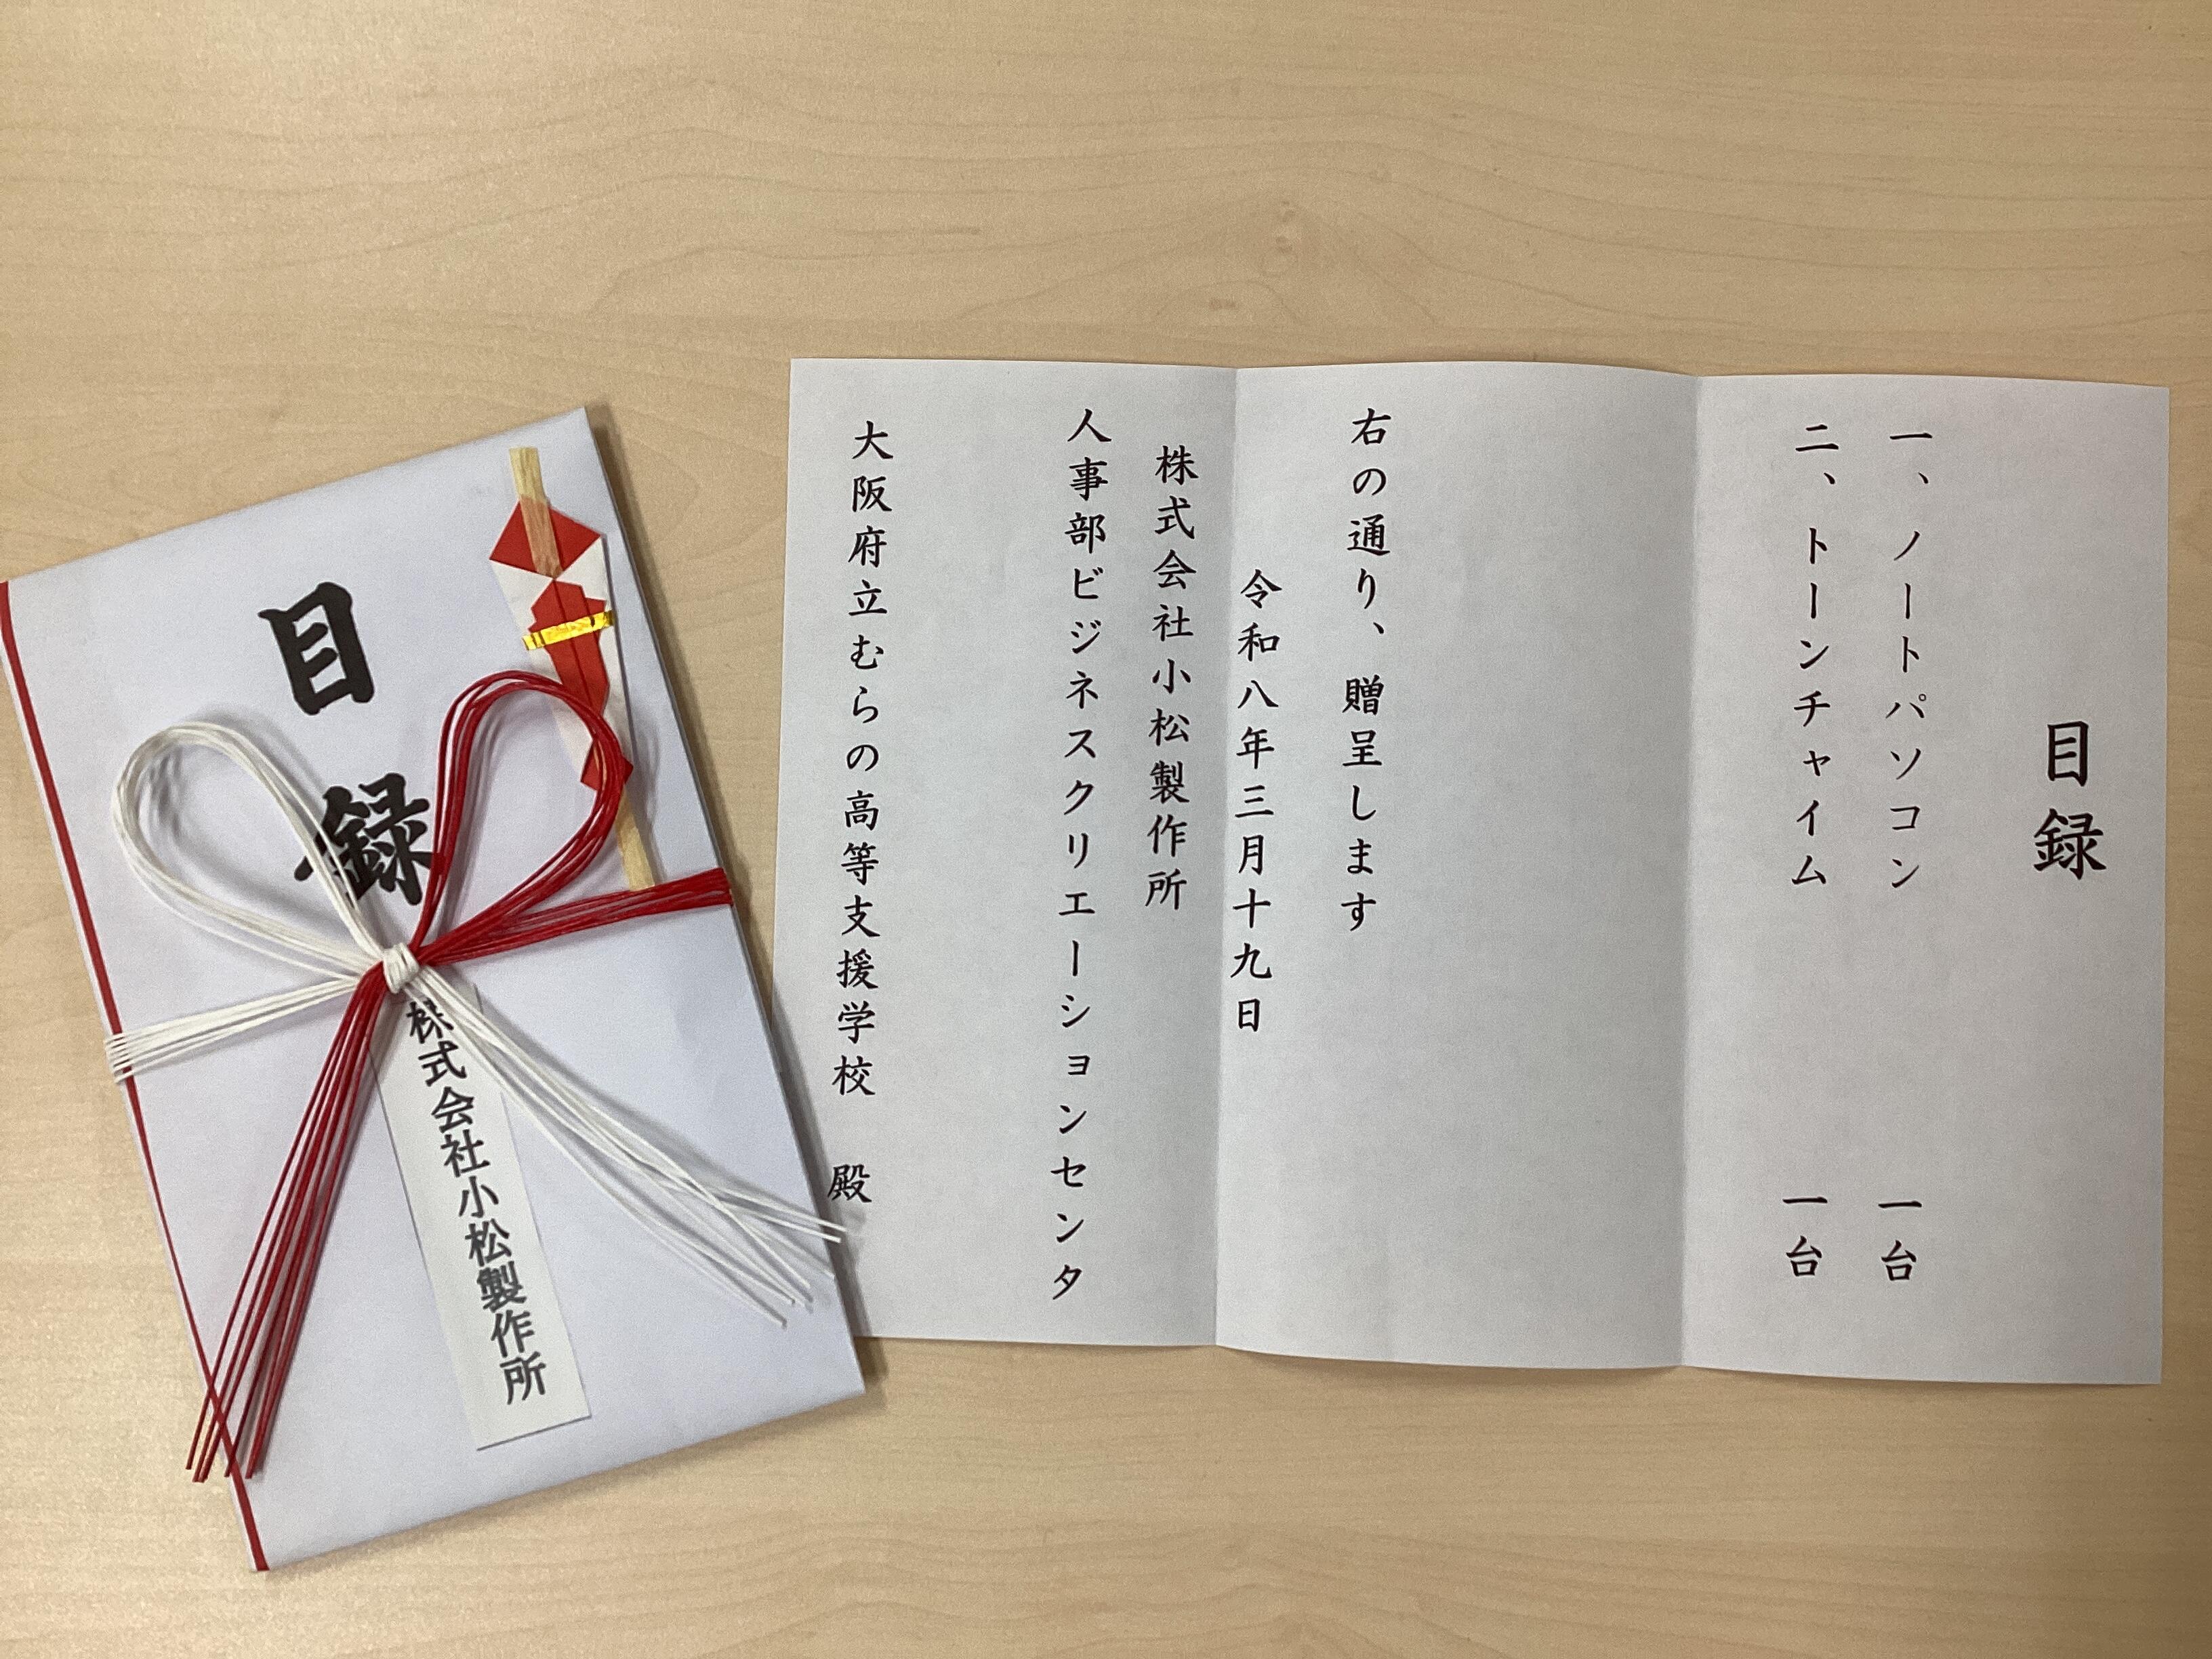 目録
一、ノートパソコン　一台
二、トーンチャイム　一台
右の通り、贈呈します
令和八年三月十九日
株式会社小松製作所
人事部ビジネスクリエーションセンタ
大阪府立むらの高等支援学校　殿
目録
株式会社小松製作所